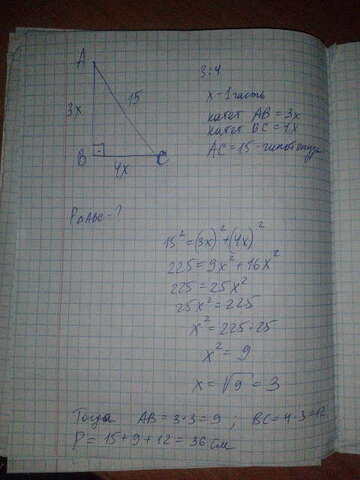 A
3x
15
B
4x
C
3:4
x - 1 часть
катет AB = 3x
катет BC = 4x
AC = 15 - гипотенуза
P△ABC - ?
15² = (3x)² + (4x)²
225 = 9x² + 16x²
225 = 25x²
25x² = 225
x² = 225:25
x² = 9
x = √9 = 3
Тогда AB = 3·3 = 9 ; BC = 4·3 = 12
P = 15 + 9 + 12 = 36 см